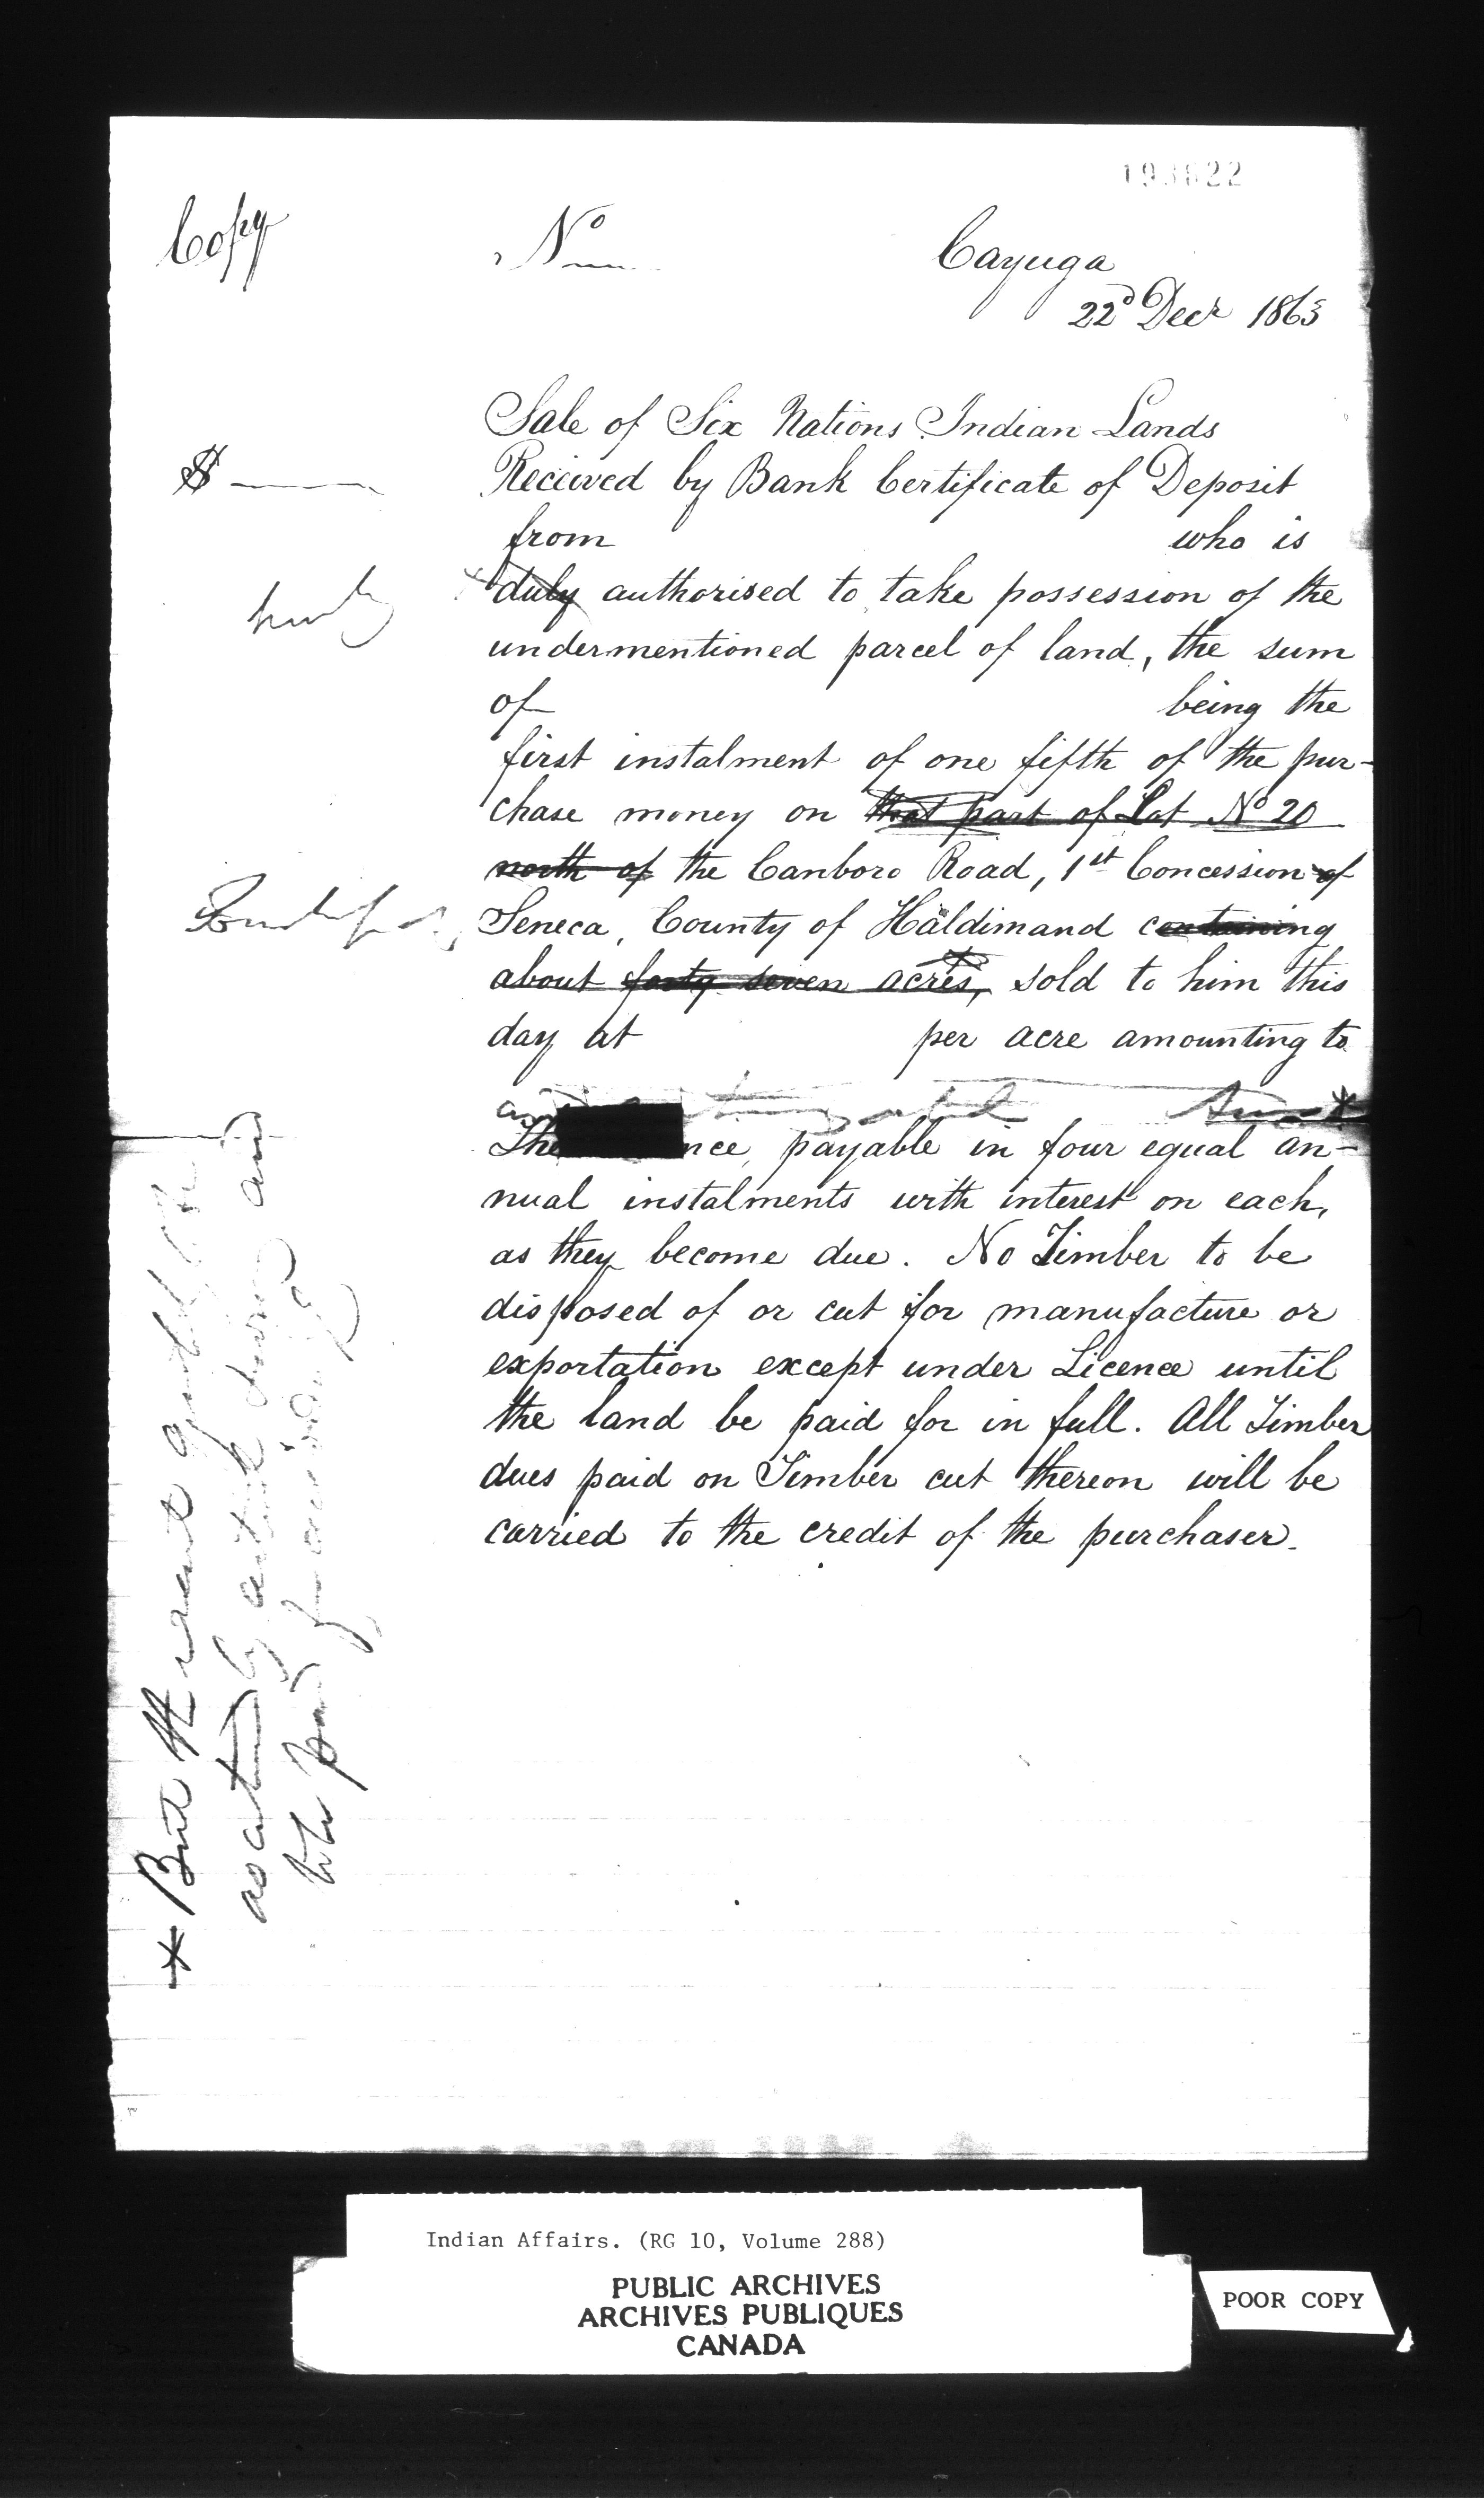 Copy
No
Cayuga
22d Decr 1863
Sale of Six Nations Indian Lands
$
Received by Bank Certificate of Deposit
from who is
duly authorised to take possession of the
undermentioned parcel of land, the sum
of being the
first instalment of one fifth of the pur-
chase money on that part of Lot No 20
north of the Canboro Road, 1st Concession of
Seneca, County of Haldimand containing
about forty seven acres, sold to him this
day at per acre amounting to
The nce, payable in four equal an-
nual instalments with interest on each,
as they become due. No Timber to be
disposed of or cut for manufacture or
exportation except under Licence until
the land be paid for in full. All Timber
dues paid on Timber cut thereon will be
carried to the credit of the purchaser.
* But
and
to be
Indian Affairs. (RG 10, Volume 288)
PUBLIC ARCHIVES
ARCHIVES PUBLIQUES
CANADA
POOR COPY